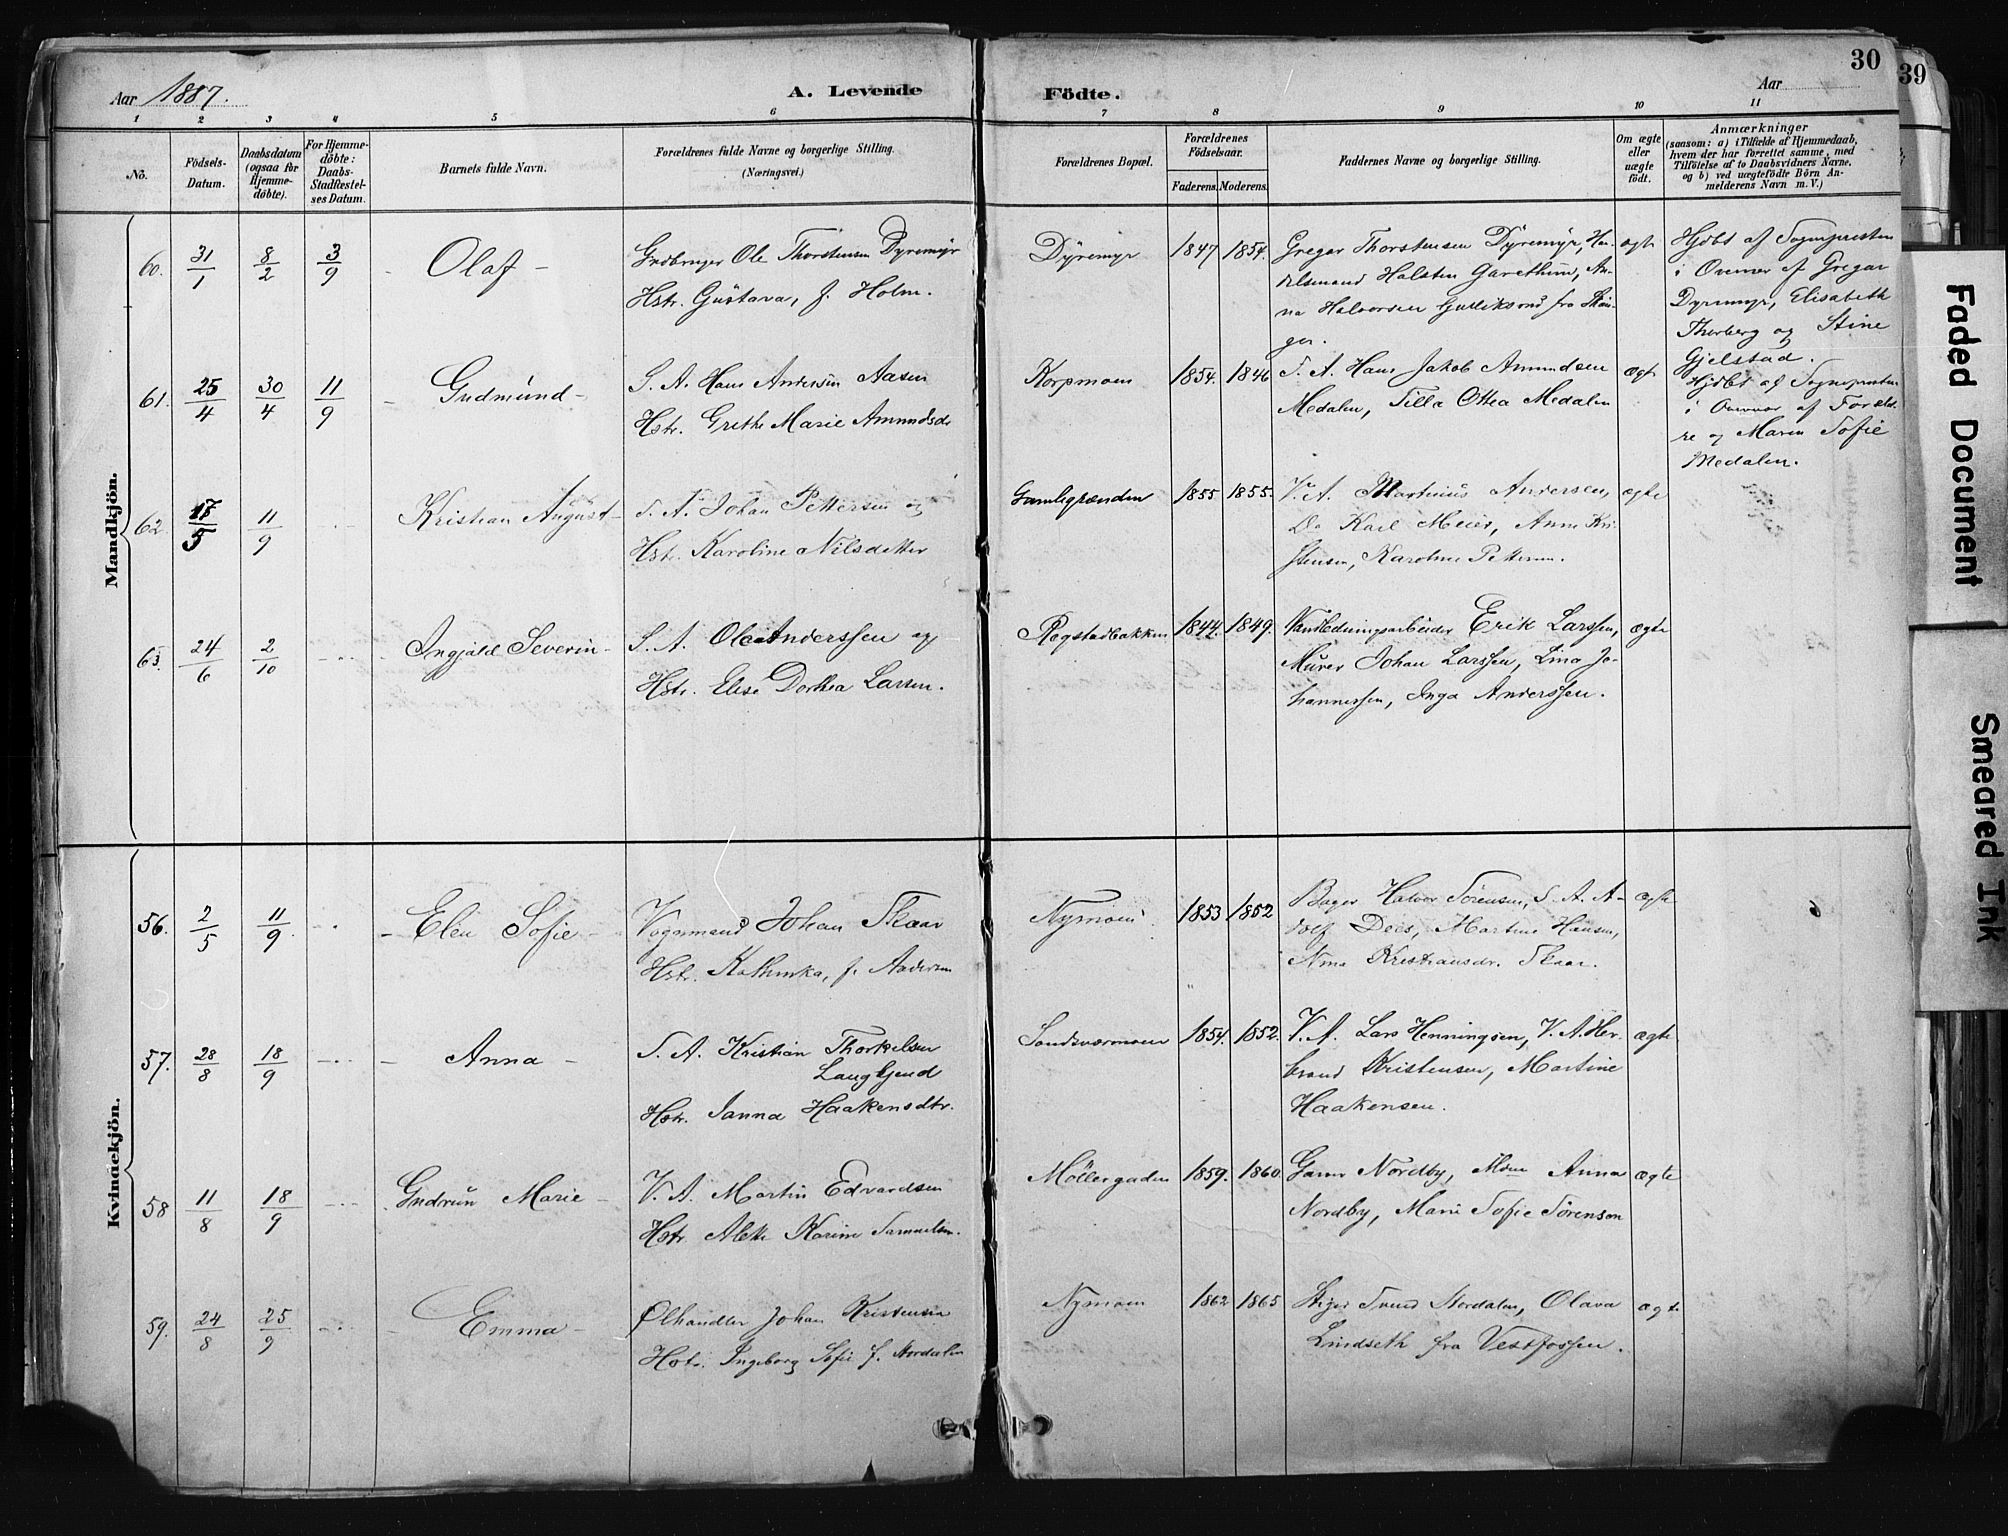 Aar 1887.
A. Levende
Födte.
Aar
30
39
1 2 3 4 5 6 7 8 9 10 11
No.
Födsels-
Datum.
Daabsdatum
(ogsaa for
Hjemme-
döbte).
For Hjemme-
döbte:
Daabs-
Stadfæstel-
ses Datum.
Barnets fulde Navn.
Forældrenes fulde Navne og borgerlige Stilling.
(Næringsvei.)
Forældrenes Bopæl.
Forældrenes
Födselsaar.
Faderens.
Moderens.
Faddernes Navne og borgerlige Stilling.
Om ægte
eller
uægte
födt.
Anmærkninger
(saasom: a) i Tilfælde af Hjemmedaab,
hvem der har forrettet samme, med
Tilföielse af to Daabsvidners Navne.
og b) ved uægtefödte Börn An-
melderens Navn m. V.)
Mandkjön.
60. 31/1 8/2 3/9 Olaf –
Gndbruger Ole Thorstensen Dyremyr
Hstr. Gustava, f. Holm.
Dyremyr 1847 1854.
Gregar Thorstensen Dyremyr, Han-
delsmand Halsten Garethun, An-
na Halvorsen fra
ger.
ægte
Hjdbt af Sognepresten
i Overvær af Gregar
Dyremyr, Elisabeth
Thorberg og Stine
Gjelstad.
61. 25/4 30/4 11/9 – Gudmund –
S. A. Hans Andersen Aasen
Hstr. Grethe Marie Amundsdr
Korpmoen 1854. 1846
S. A. Hans Jakob Amundsen
Medalen, Tilla Ottea Medalen
ægte
Hjdbt af Sognepresten
i Overvær af Foræld-
re og Maren Sofie
Medalen.
62. 17/5 11/9 Kristian August –
S. A. Johan Pettersen og
Hstr. Karoline Nilsdatter
Gamlegrænden 1855 1855.
V. A. Martinus Andersen,
Do Karl Meier, Anne Kri-
stensen, Karoline Pettersen.
ægte
63. 24/6 2/10 Ingjald Severin –
S. A. Ole Anderssen og
Hstr. Elise Dorthea Larsen.
Regstadbakken 1844. 1849.
Vandledningsarbeider Erik Larssen,
Murer Johan Larssen, Lina Jo-
hannessen, Inga Anderssen.
ægte
Kvindekjön.
56. 2/5 11/9 – Elen Sofie –
Vognmand Johan Skaar
Hstr. Kathinka, f. Andersen
Nymoen 1853. 1852
Bager Halvor Sörensen, S. A. A-
dolf Dees, Martine Hansen,
Nina Kristiansdr. Skaar.
ægte
57. 28/8 18/9 – Anna –
S. A. Kristian Thorkelsen
Langkjend
Hstr. Janna Haakensdtr.
Sandsværmoen 1854. 1852.
V. A. Lars Henningsen, V. A. Her-
brand Kristensen, Martine
Haakensen.
ægte
58 11/8 18/9 Gudrun Marie –
V. A. Martin Edvardsen
Hstr. Alette Karine Samuelsen.
Möllergaden 1859. 1860.
Nordby, Anna
Nordby, Marie Sofie Sörensen
ægte
59. 24/8 25/9 – Emma –
Ölhandler Johan Kristensen
Hstr. Ingeborg Sofie f. Nordalen
Nymoen 1862 1865
Stiger Svend Nordalen, Olava
Lindseth fra Vestfossen.
ægte
Faded Document
Smeared Ink